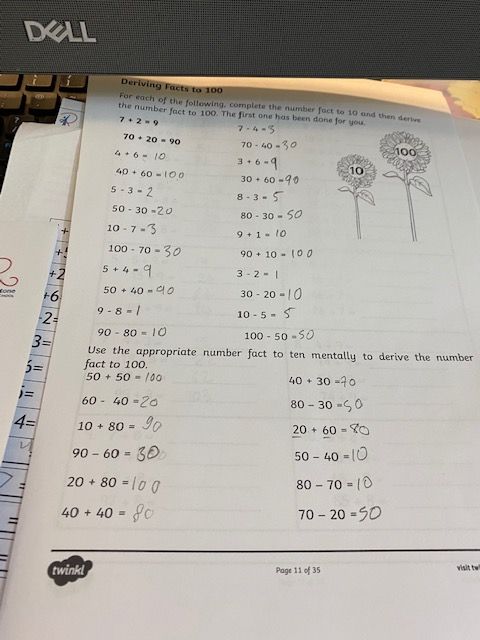 DELL
Deriving Facts to 100
For each of the following, complete the number fact to 10 and then derive
the number fact to 100. The first one has been done for you.
7 + 2 = 9
70 + 20 = 90
4 + 6 = 10
40 + 60 = 100
5 - 3 = 2
50 - 30 = 20
10 - 7 = 3
100 - 70 = 30
5 + 4 = 9
50 + 40 = 90
9 - 8 = 1
90 - 80 = 10
7 - 4 = 3
70 - 40 = 30
3 + 6 = 9
30 + 60 = 90
8 - 3 = 5
80 - 30 = 50
9 + 1 = 10
90 + 10 = 100
3 - 2 = 1
30 - 20 = 10
10 - 5 = 5
100 - 50 = 50
10
100
Use the appropriate number fact to ten mentally to derive the number
fact to 100.
50 + 50 = 100
60 - 40 = 20
10 + 80 = 90
90 - 60 = 30
20 + 80 = 100
40 + 40 = 80
40 + 30 = 70
80 - 30 = 50
20 + 60 = 80
50 - 40 = 10
80 - 70 = 10
70 - 20 = 50
twinkl
Page 11 of 35
visit
+2
+6
2=
3=
4=